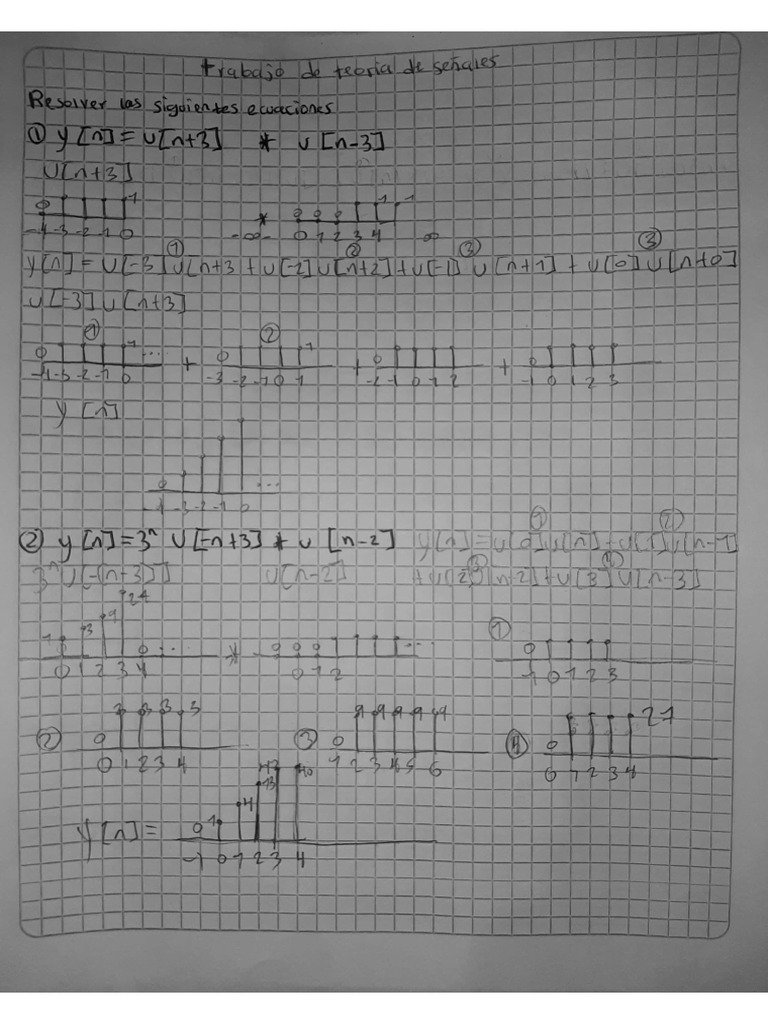 trabajo de teoria de señales
Resolver las siguientes ecuaciones
① y[n] = u[n+3] * u[n-3]
u[n+3]
0 1 * 0 0 0 1 1
-4 -3 -2 -1 0 -∞ 0 1 2 3 4 ∞
① ② ③ ③
y[n] = u[-3]u[n+3 + u[-2]u[n+2] + u[-1] u[n+1] + u[0]u[n+0]
u[-3]u[n+3]
① ②
0 1 ... + 0 1 + 0 + 0
-4 -3 -2 -1 0 -3 -2 -1 0 1 -2 -1 0 1 2 -1 0 1 2 3
y[n]
0 ...
-4 -3 -2 -1 0
② y[n] = 3ⁿ u[-n+3] * u[n-2] y[n] = u[0]u[n] + u[1]u[n-1]
3ⁿu[-(n+3)] u[n-2] + u[2] n-2] + u[3] u[n-3]
1 3 9 24 0 ... * 0 0 0 ... ① 0
0 1 2 3 4 0 1 2 -1 0 1 2 3
② 0 3 3 3 3 ③ 0 9 9 9 9 9 ④ 0 27
0 1 2 3 4 1 2 3 4 5 6 0 1 2 3 4
y[n] = 0 1 4 13 40
-1 0 1 2 3 4